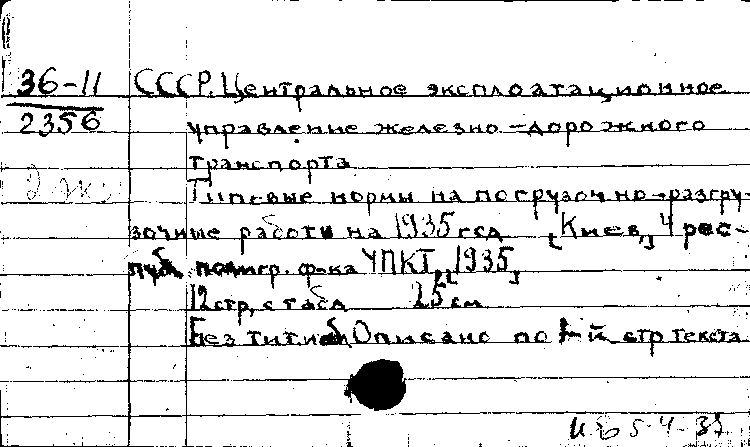 36-11 СССР. Центральное эксплоатационное
2356 управление железно-дорожного
транспорта
2 экз
Типовые нормы на погрузочно-разгру-
зочные работы на 1935 год [Киев,] 4 рес-
публ. полигр. ф-ка УПКТ, [1935]
12 стр. с табл 25 см
Без тит. л. Описано по 1-й стр текста
5-4-37